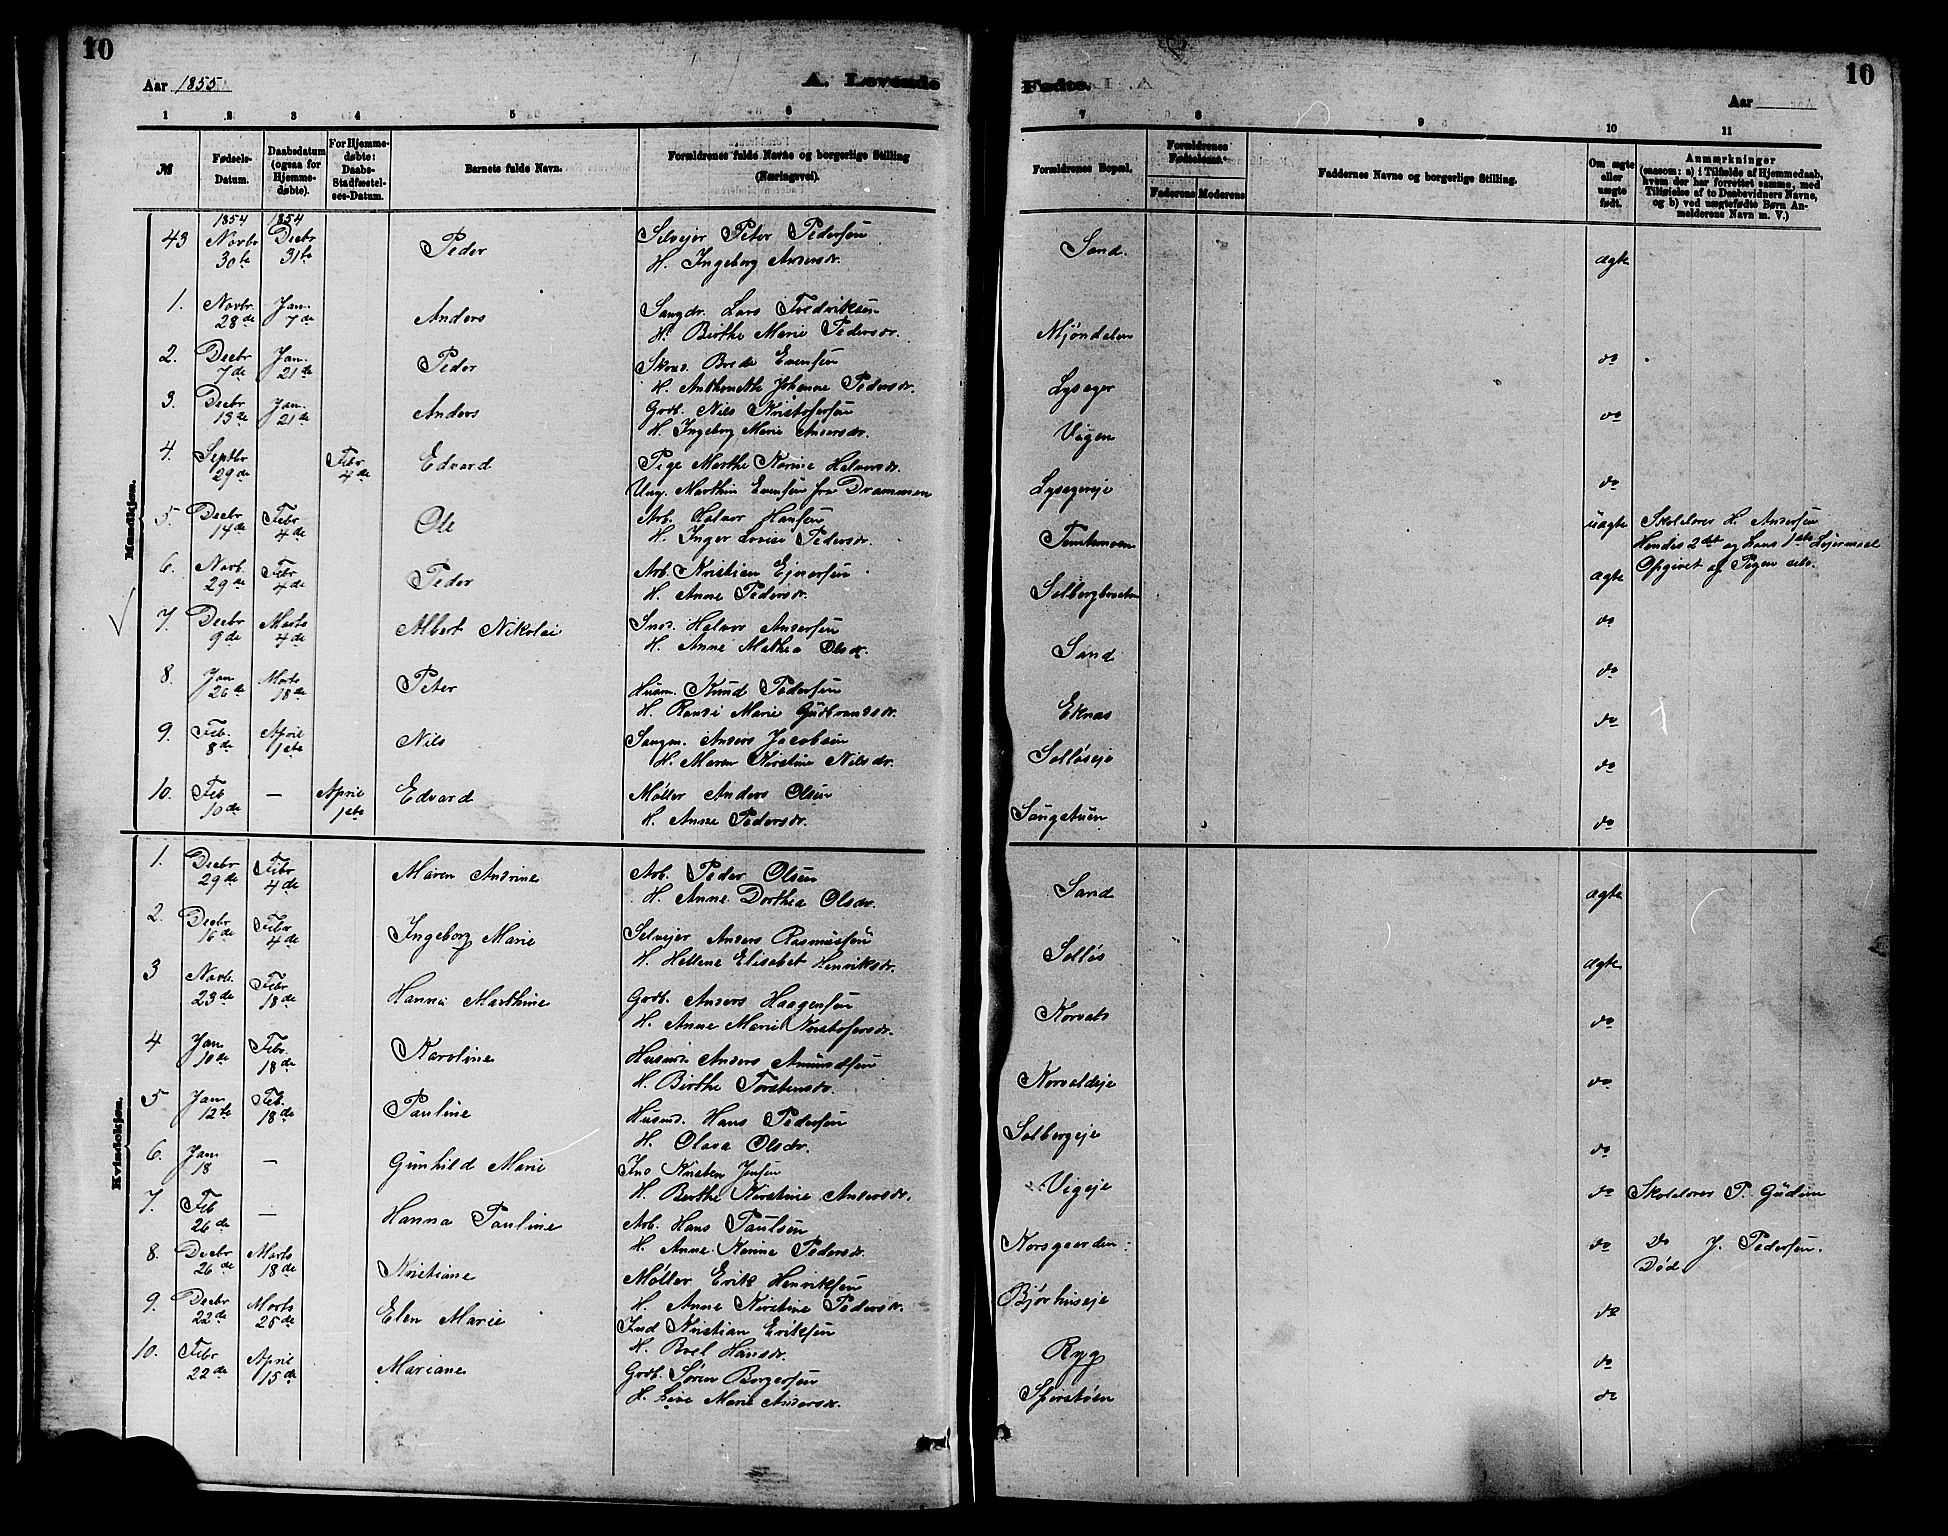 10
10
Aar 1855
A. Levende
Fødte.
Aar
1 2 3 4 5 6 7 8 9 10 11
№
Fødsels-Datum.
Daabsdatum (ogsaa for Hjemmedøbte).
For Hjemmedøbte: Daabs-Stadfæstelses-Datum.
Barnets fulde Navn.
Forældrenes fulde Navne og borgerlige Stilling (Næringsvei).
Forældrenes Bopæl.
Forældrenes Fødselsaar.
Faderens
Moderens
Faddernes Navne og borgerlige Stilling.
Om ægte eller uægte født.
Anmærkninger (saasom: a) i Tilfælde af Hjemmedaab, hvem der har forrettet samme, med Tilføielse af to Daabsvidners Navne, og b) ved uægtefødte Børn Anmelderens Navn m. V.)
Mandkjøn.
1854 1854
43 Novbr 30te Decbr 31te Peder Selvejer Peter Pedersen Sand. ægte
H. Ingeborg Andersdr.
1. Novbr. 28de Jan. 7de Anders Lars Fredriksen Mjøndalen do
H. Birthe Marie Pedersdr.
2. Decbr 7de Jan. 21de Peder Brede Evensen Lysager do
H. Anthonette Johanne Pedersdr.
3. Decbr 13de Jan. 21de Anders Gdb. Nils Kristofersen Vigen do
H. Ingeborg Marie Andersdr.
4. Septbr 29de Febr 4de Edvard Pige Marthe Karine Halvorsdr. Lysagereje uægte Skolelærer H. Andersen
Ung. Marthin Evensen fra Drammen Hendes 2det og hans 1ste Lejermaal
Opgivet af Pigen selv.
5. Decbr 14de Febr 4de Ole Arb. Halvor Hansen Tomtemoen ægte
H. Inger Lovise Pedersdr.
6. Novb. 29de Febr 4de Peder Arb. Kristian Ejnersen Solbergbraaten do
H. Anne Pedersdr.
7. Decbr 9de Marts 4de Albert Nikolai Halvor Andersen Sand do
H. Anne Mathea Olsdr.
8. Jan 26de Marts 18de Peter Husm. Knud Pedersen Eknæs do
H. Randi Marie Gudbrandsdr.
9. Feb. 8de April 1ste Nils Anders Jacobsen Solløseje do
H. Maren Kirstine Nilsdr.
10. Feb 10de — April 1ste Edvard Møller Anders Olsen Langstuen do
H. Anne Pedersdr.
Kvindekjøn.
1. Decbr 29de Febr 4de Maren Andrine Arb. Peder Olsen Sand ægte
H. Anne Dorthea Olsdr.
2. Decbr 16de Febr 4de Ingeborg Marie Selvejer Anders Rasmussen Solløs ægte
H. Hellene Elisabet Henriksdr.
3 Novb. 23de Febr 18de Hanna Marthine Gdb. Anders Haagensen Korvald do
H. Anne Marie Kristofersdr.
4 Jan 10de Febr. 18de Karoline Husmd. Anders Amundsen Korvaldeje do
H. Birthe Torstensdr.
5 Jan. 12te Feb. 18de Pauline Husmd. Hans Pedersen Solbergeje do
H. Olava Olsdr.
6. Jan 18 — Gunhild Marie Ind Kristen Jensen Vigeje do Skolelærer P. Gudim
H. Berthe Kirstine Andersdr.
7. Feb 26de — Hanna Pauline Arb. Hans Paulsen Korsgaarden do Do J. Pedersen.
H. Anne Karine Pedersdr. Død
8. Decbr 26de Marts 18de Kristiane Møller Erik Henriksen Bjørhuseje do
H. Anne Kirstine Pedersdr.
9. Decbr 22de Marts 25de Elen Marie Ind Kristian Eriksen Ryg do
H. Boel Hansdr.
10. Febr 22de April 15de Mariane Gdb. Søren Borgersen Sperstøen do
H. Live Marie Andersdr.